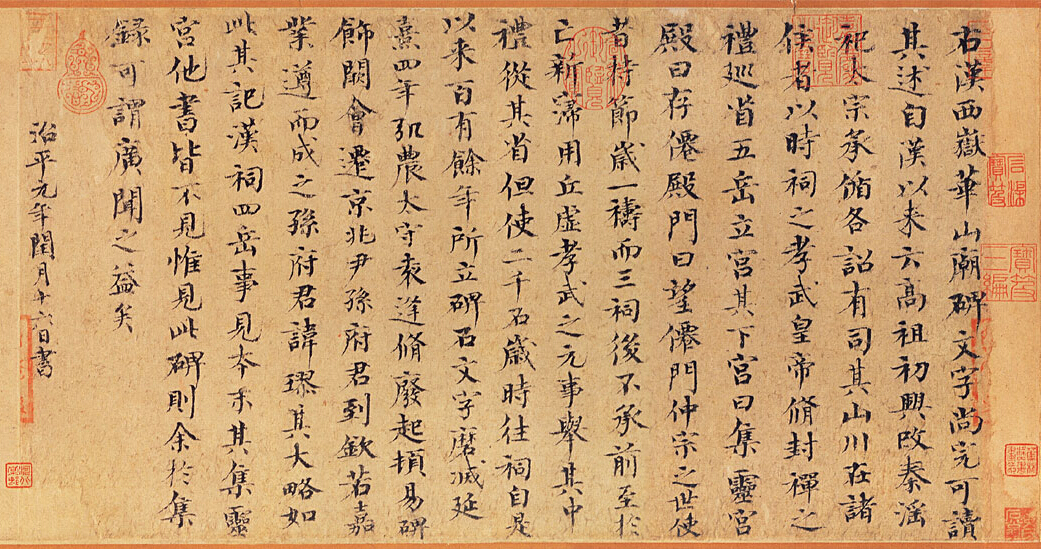 右漢西嶽華山廟碑文字尚完可讀
其述自漢以来云高祖初興改秦滛
祀太宗承脩各詔有司其山川在諸
侯者以時祠之孝武皇帝脩封禪之
禮廵省五岳立宮其下宮曰集靈宮
殿曰存僊殿門曰望僊門仲宗之世使
者持節歳一禱而三祠後不承前至於
亡新寖用丘虛孝武之元事舉其中
禮從其省但使二千石歳時往祠自是
以来百有餘年所立碑石文字磨滅延
熹四年弘農太守袁逢脩廢起頓易碑
飾闕會遷京兆尹孫府君到欽若嘉
業遵而成之孫府君諱璆其大略如
此其記漢祠四岳事見本末其集靈
宮他書皆不見惟見此碑則余於集
録可謂廣聞之益矣
治平元年閏月十六日書
寶笈三編